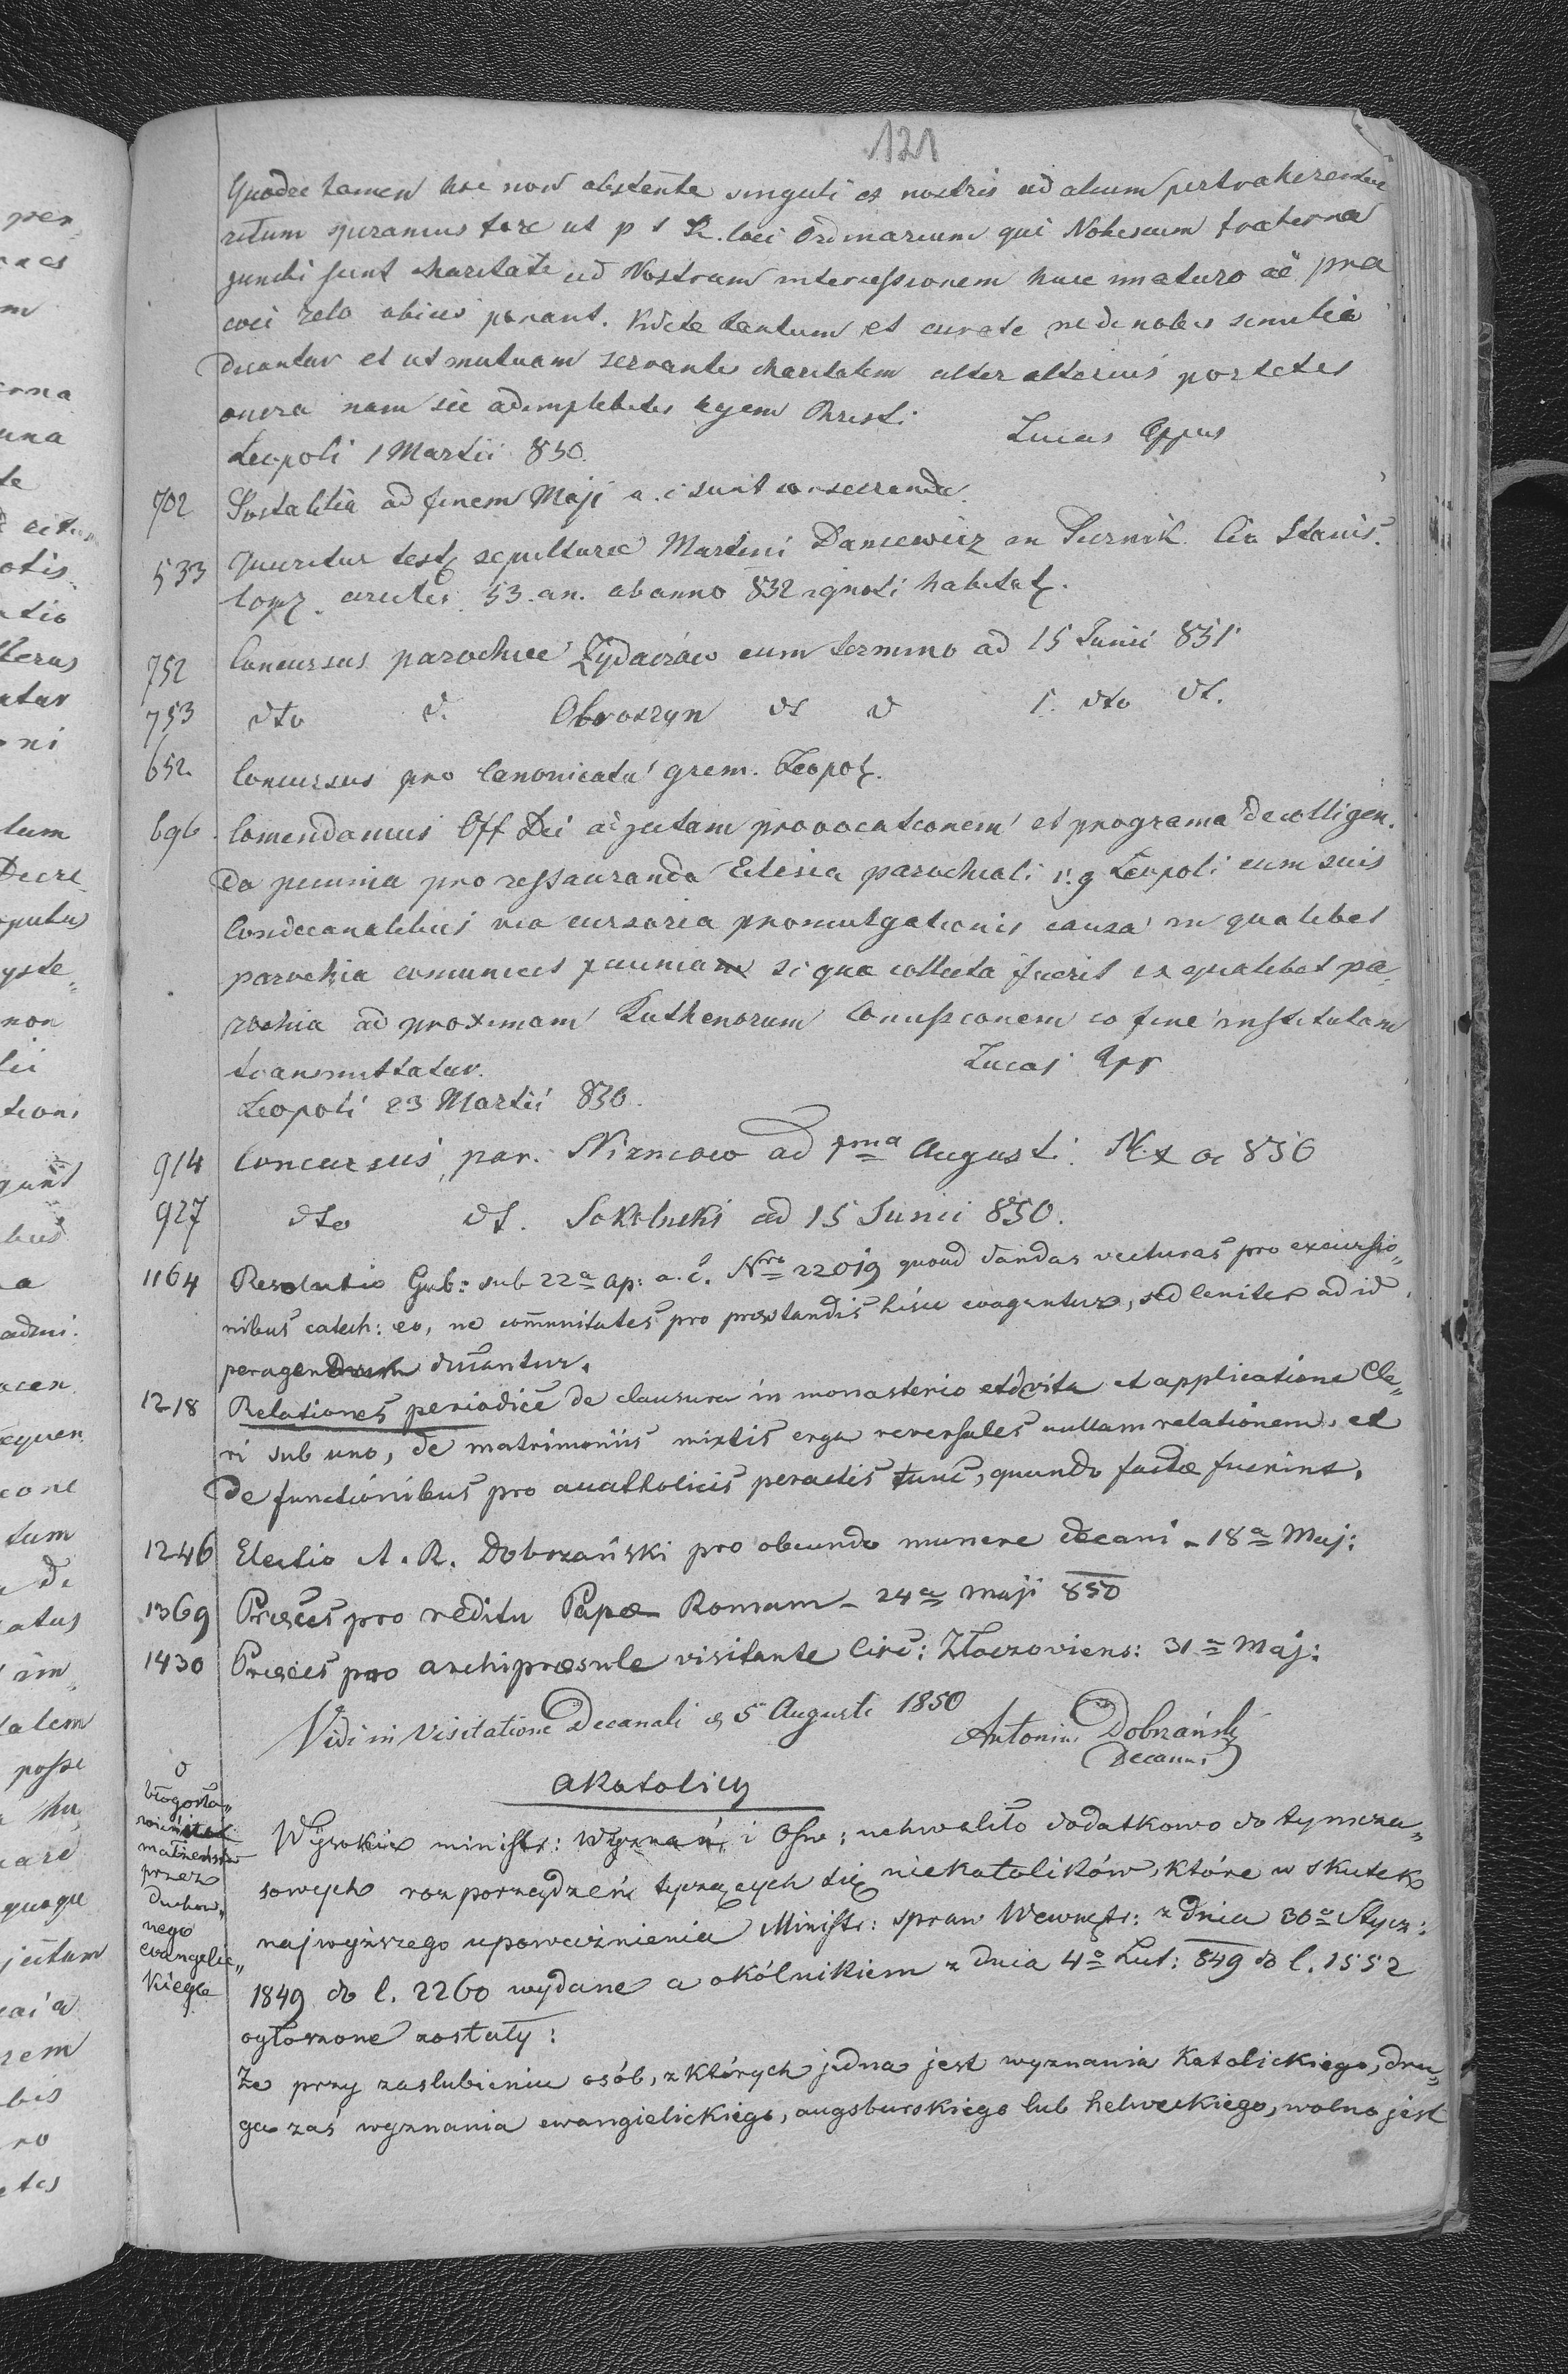 121
Quodsi tamen hoc non obstante singuli ex nostris ad alium pertraherentur
ritum speramus fore ut p t R. loci Ordinarium qui Nobiscum fraterna
juncti sunt charitate ad Nostram intercessionem huic imaturo ac præ
coci zelo obices ponant. Videte tantum et curate ne de nobis similia
dicantur et ut mutuam servantes charitatem alter alterius portetis
onera nam sic adimplebitis legem Christi
Leopoli 1 Martii 850. Lucas Eppus
702 Postalitia ad finem Maji a. c sunt consecranda.
533 Quæritur test sepulturæ Martini Daniewicz an Piernik Cir Stanis.
aetatis 53. an. ab anno 832 ignoti habitat
752 Concursus parochiæ Żydaczów cum termino ad 15 Junii 851
753 dto d. Obroszyn dt d 1. dto dt.
652. Concursus pro Canonicatu grem. Leopol.
696. Comendamus Off Dei adjectam provocationem et programa de colligen.
da pecunia pro restauranda Eclesia parochiali r. g Leopoli cum suis
Condecanalibus via cursoria promulgationis causa in qualibet
parochia comunicet pecunia si qua collecta fuerit ex qualibet pa-
rochia ad proximam Ruthenorum Comissionem eo fine institutam
transmittatur. Lucas Epp
Leopoli 23 Martii 850.
914 Concursus par. Nizniow ad 1ma Augusti 850
927 dto dt. Sokolniki ad 15 Junii 850.
1164 Resolutio Gub: sub 22a ap: a. c. Nro 22019 quoad dandas vecturas pro excursio„
nibus catech: eo, ne communitates pro præstandis hisce evagentur, sed leniter ad id
peragendum ducantur.
1218 Relationes periodicæ de clausura in monasterio et de vita et applicatione Cle„
ri sub uno, de matrimoniis mixtis erga reversales nullam relationem, et
de functionibus pro acatholicis peractis tunc, quando factæ fuerint.
1246 Electio A. R. Dobrzański pro obeundo munere decani - 18a Maj:
1369 Preces pro reditu Papæ Romam - 24a Maji 850
1430 Preces pro archipræsule visitante Circ: Złoczoviens: 31a Maj:
Vidi in Visitatione Decanali d 5 Augusti 1850 Antonius Dobrzański
Decanus
Akatolicy
O
błogosła„
wieństwie
małżeństw
przez
duchow„
nego
evangelic„
kiego
Wysokie ministr: Wyznań i Ośw: uchwaliło dodatkowo do tymcza„
sowych rozporządzeń tyczących się niekatolików, które w skutek
najwyższego upoważnienia Ministr: spraw Wewnętr: z dnia 30o Stycz:
1849 do l. 2260 wydane a okólnikiem z dnia 4o Lut: 849 do l. 1552
ogłoszone zostały:
Że przy zaslubieniu osób, z których jedna jest wyznania Katolickiego, dru„
ga zaś wyznania ewangielickiego, augsburskiego lub helweckiego, wolno jest